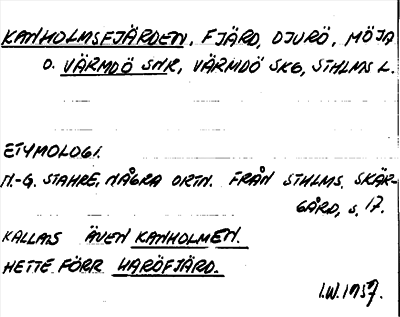 KANHOLMSFJÄRDEN, FJÄRD, DJURÖ, MÖJA
O. VÄRMDÖ SNR, VÄRMDÖ SKG, STHLMS L.
ETYMOLOGI.
N.-G. STAHRE, NÅGRA ORTN. FRÅN STHLMS SKÄR-
GÅRD, S. 17.
KALLAS ÄVEN KANHOLMEN.
HETTE FÖRR HARÖFJÄRD.
I.W. 1957.